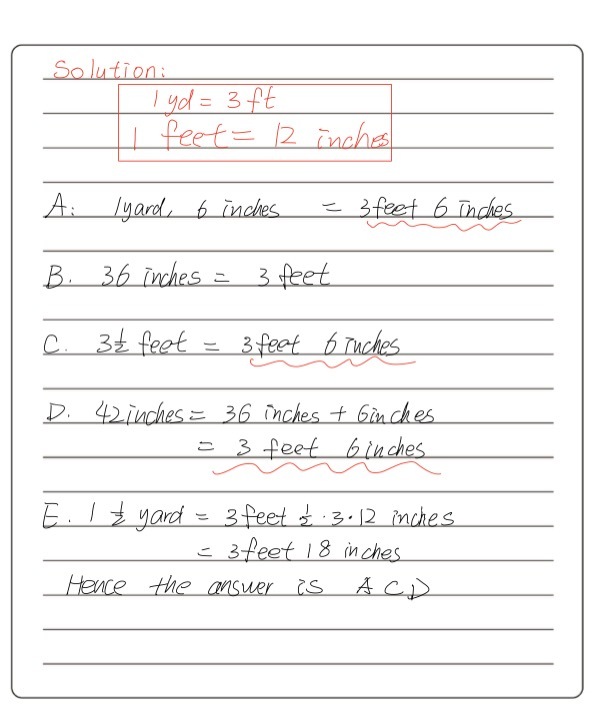 Solution:
1 yd = 3 ft
1 feet = 12 inches
A: 1yard, 6 inches = 3feet 6 inches
B. 36 inches = 3 feet
C. 3½ feet = 3feet 6 inches
D. 42 inches = 36 inches + 6inches
= 3 feet 6 inches
E. 1 ½ yard = 3feet ½·3·12 inches
= 3feet 18 inches
Hence the answer is A C D